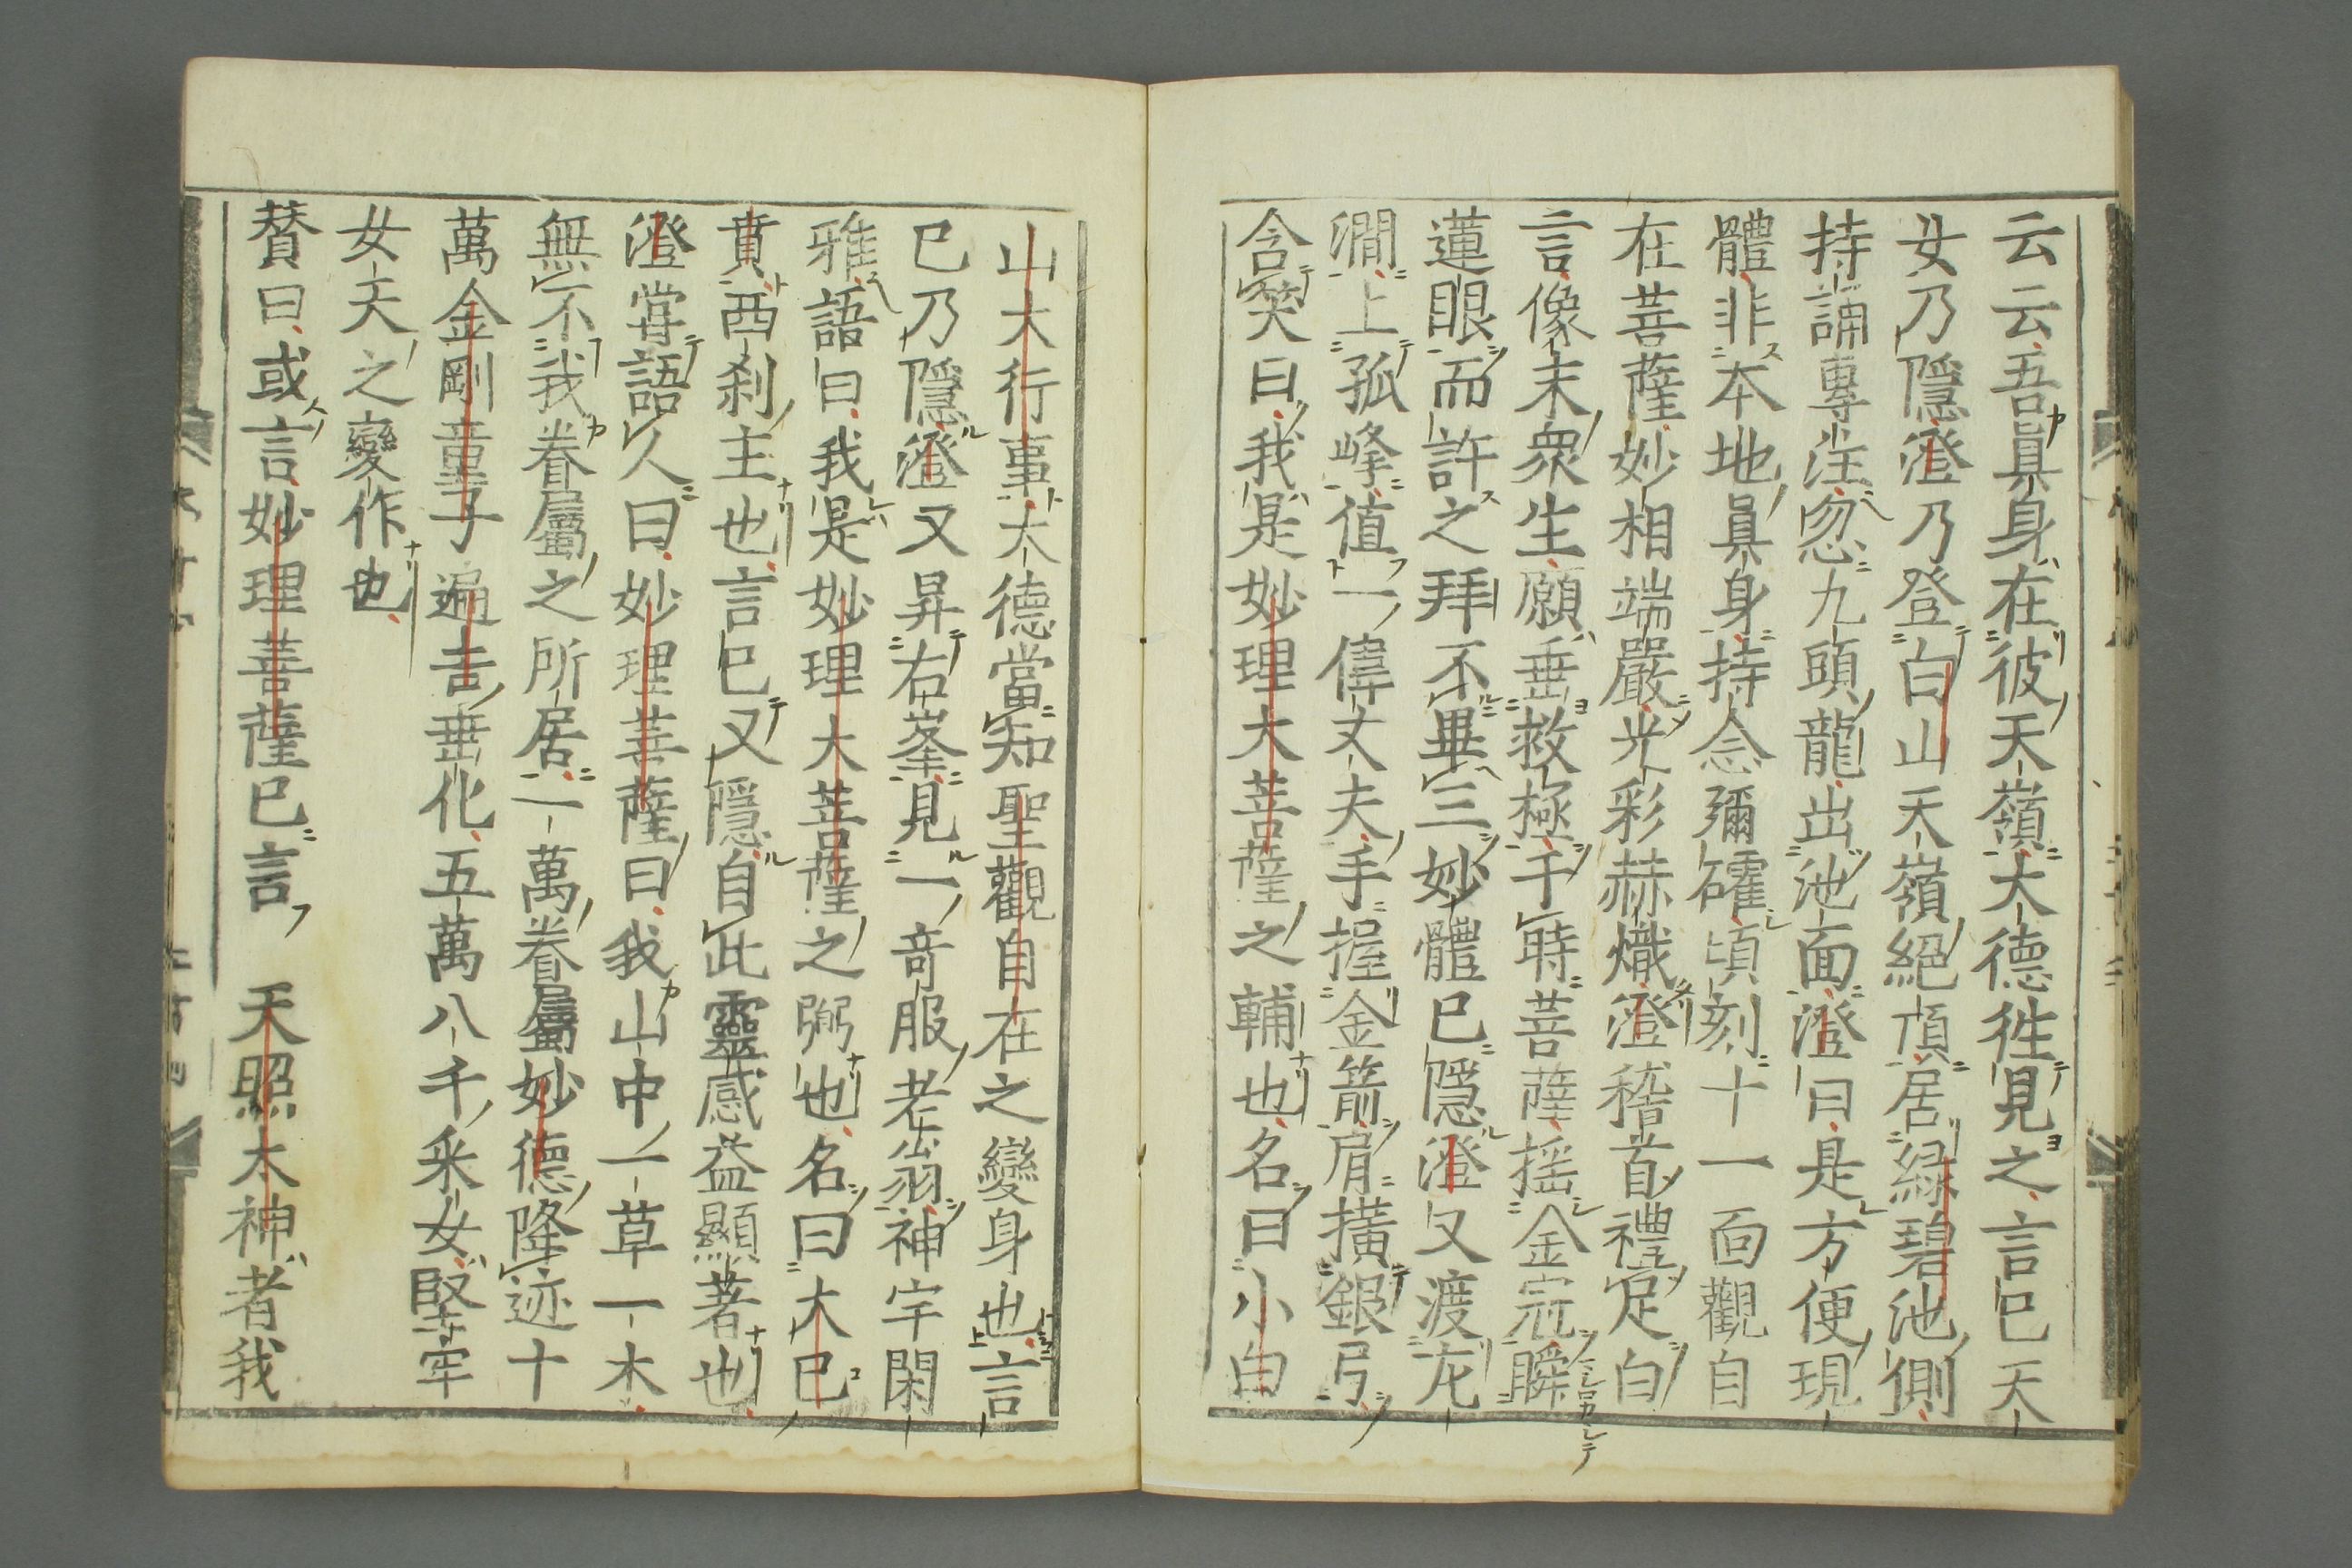 云云吾眞身在彼天嶺大德徃見之言已天
女乃隱澄乃登白山天嶺絕頂居緑碧池側
持誦專注忽九頭龍出池面澄曰是方便現
體非本地眞身持念彌礭頃刻十一面觀自
在菩薩妙相端嚴光彩赫熾澄稽首禮足白
言像末衆生願垂救極于時菩薩揺金冠瞬
蓮眼而許之拜不畢三妙體已隱澄又渡左
澗上孤峰値一偉丈夫手握金箭肩横銀弓
含笑曰我是妙理大菩薩之輔也名曰小白
山大行事大德當知聖觀自在之變身也言
已乃隱澄又昇右峯見一竒服老翁神宇閑
雅語曰我是妙理大菩薩之弼也名曰大巳
貴西刹主也言已又隱自此靈感益顯著也
澄甞語人曰妙理菩薩曰我山中一草一木
無不我眷屬之所居一萬眷屬妙德降迹十
萬金剛童子遍吉垂化五萬八千采女堅牢
女天之變作也
賛曰或言妙理菩薩已言天照大神者我